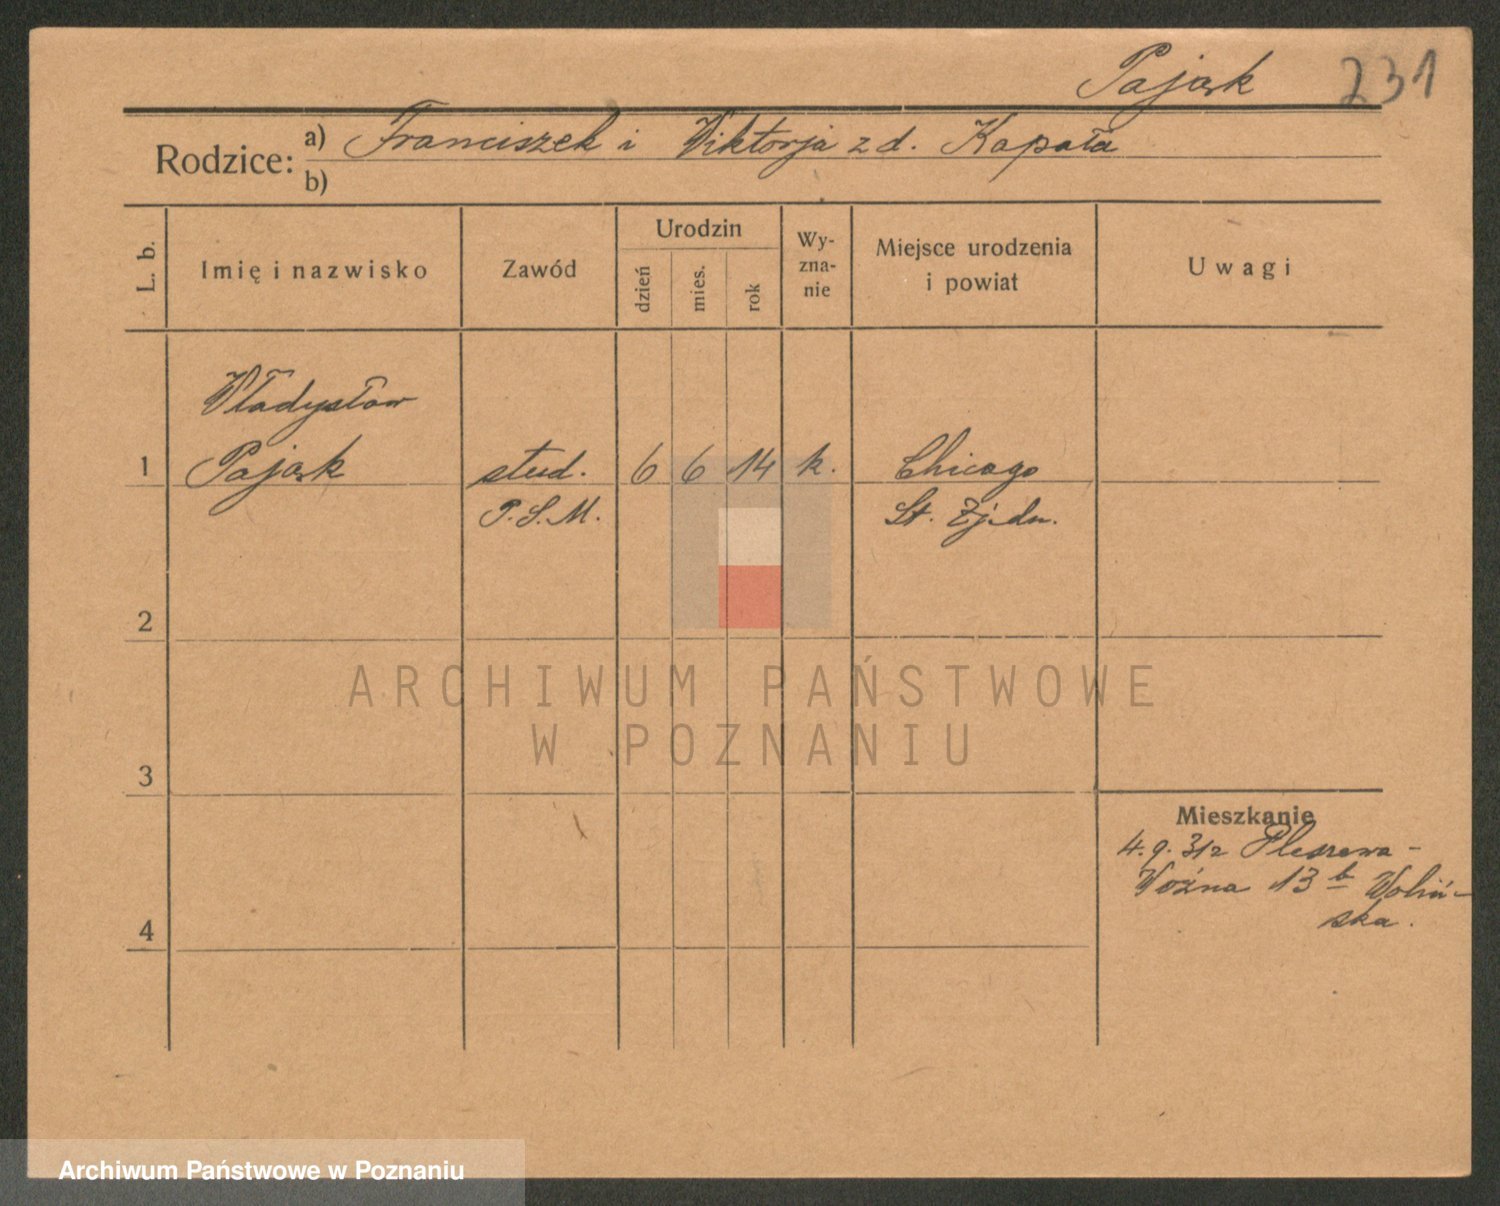 Pająk 231
Rodzice: a) Franciszek i Wiktorja z d. Kapała
b)
L. b.
Imię i nazwisko
Zawód
Urodzin
dzień
mies.
rok
Wy-
zna-
nie
Miejsce urodzenia
i powiat
Uwagi
Władysław
1 Pająk stud. 6 6 14 k. Chicago
P.S.M. St. Zjedn.
2
3
4
Mieszkanie
4.9.31 z Pleszewa -
Woźna 13 b Woliń-
ska.
ARCHIWUM PAŃSTWOWE
W POZNANIU
Archiwum Państwowe w Poznaniu